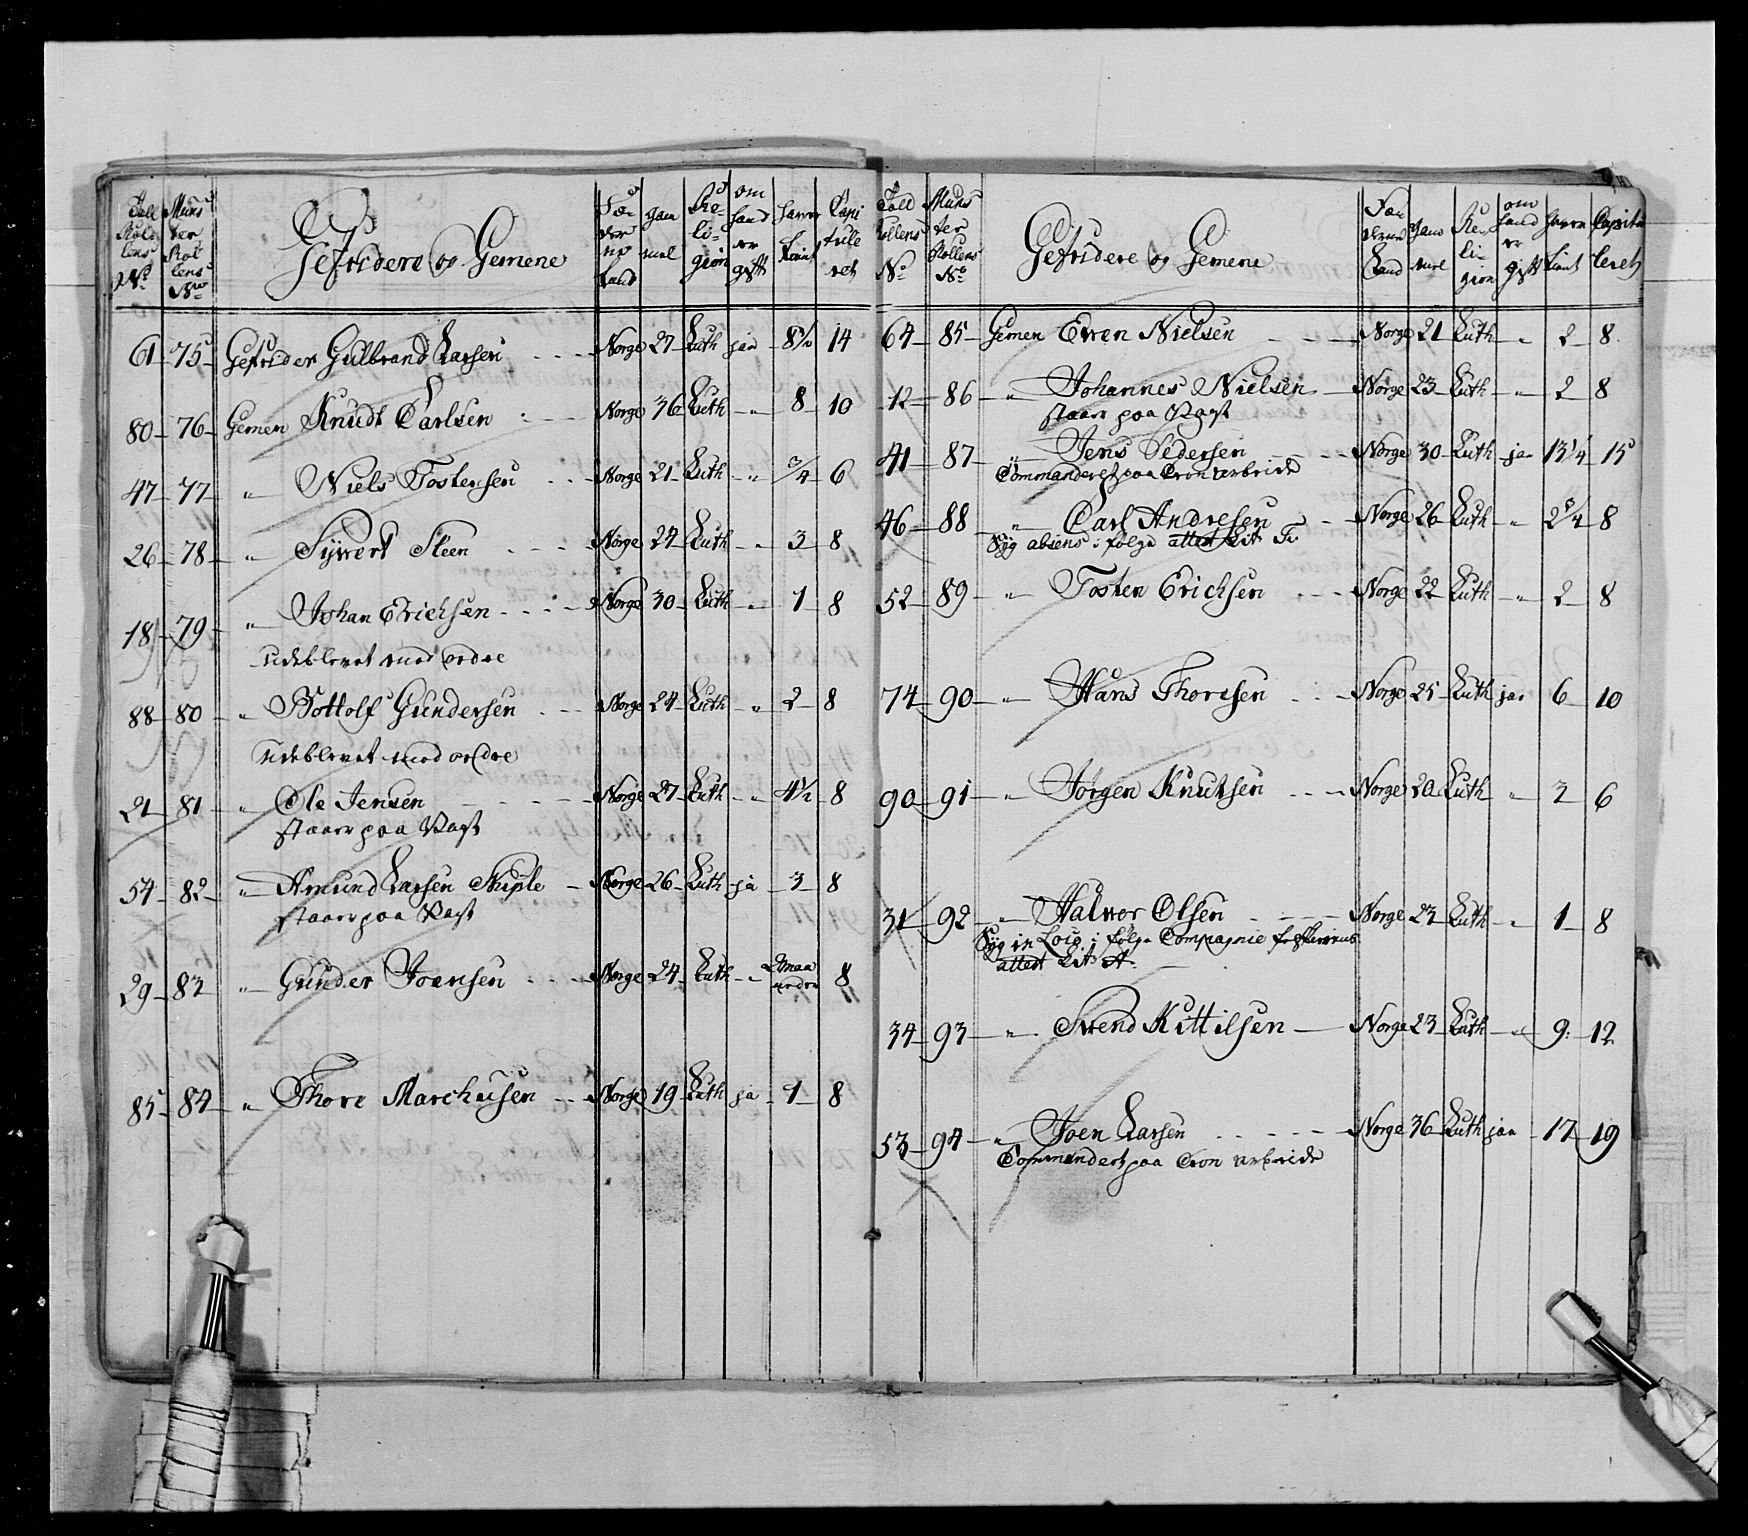 Tall Rollens No | Munster Rollens No | Gefridere og Gemene | Fæderne Land | Gammel | Religion | om hand er gift | Har tient | Capituleret
61 - 75 - Gefrider Gulbrand Larsen - Norge 27 Luth jaa 8½ 14
80 - 76 - Gemen Knudt Carlsen - Norge 36 Luth " 8 10
47 - 77 - " Niels Tostensen - Norge 21 Luth " 3/4 6
26 - 78 - " Syvert Steen - Norge 24 Luth " 3 8
18 - 79 - " Johan Erichsen - Norge 30 Luth " 1 8
udeblevet mod ordre
88 - 80 - " Bottolf Gundersen - Norge 24 Luth " 2 8
udeblevet mod ordre
21 - 81 - " Ole Jensen - Norge 27 Luth " 4½ 8
staar paa Vagt
54 - 82 - " Amund Larsen - Norge 26 Luth ja 3 8
staar paa Vagt
29 - 83 - " Gunder Joensen - Norge 24 Luth " 2 maaneder 8
85 - 84 - " Thore Marchusen - Norge 19 Luth ja 1 8
Tall Rollens No | Munster Rollens No | Gefridere og Gemene | Fæderne Land | Gammel | Religion | om hand er gift | Har tient | Capituleret
64 - 85 - Gemen Even Nielsen - Norge 21 Luth " 2 8
12 - 86 - " Johannes Nielsen - Norge 23 Luth " 2 8
staar paa Vagt
41 - 87 - " Jens Pedersen - Norge 30 Luth ja 13 1/4 15
Commanderet paa Cron arbeide
46 - 88 - " Carl Andresen - Norge 26 Luth " 2 3/4 8
Syg absens i følge attest Lit
52 - 89 - " Tosten Erichsen - Norge 22 Luth " 2 8
74 - 90 - " Hans Thoresen - Norge 25 Luth jaa 6 10
90 - 91 - " Jørgen Knutsen - Norge 20 Luth " 2 6
31 - 92 - " Halvor Olsen - Norge 23 Luth " 1 8
Syg in Loco i følge Compagnie
attest Lit A
34 - 93 - " Svend Kittilsen - Norge 23 Luth " 9 12
53 - 94 - " Joen Larsen - Norge 36 Luth jaa 17 19
Commandert paa Cron arbeide